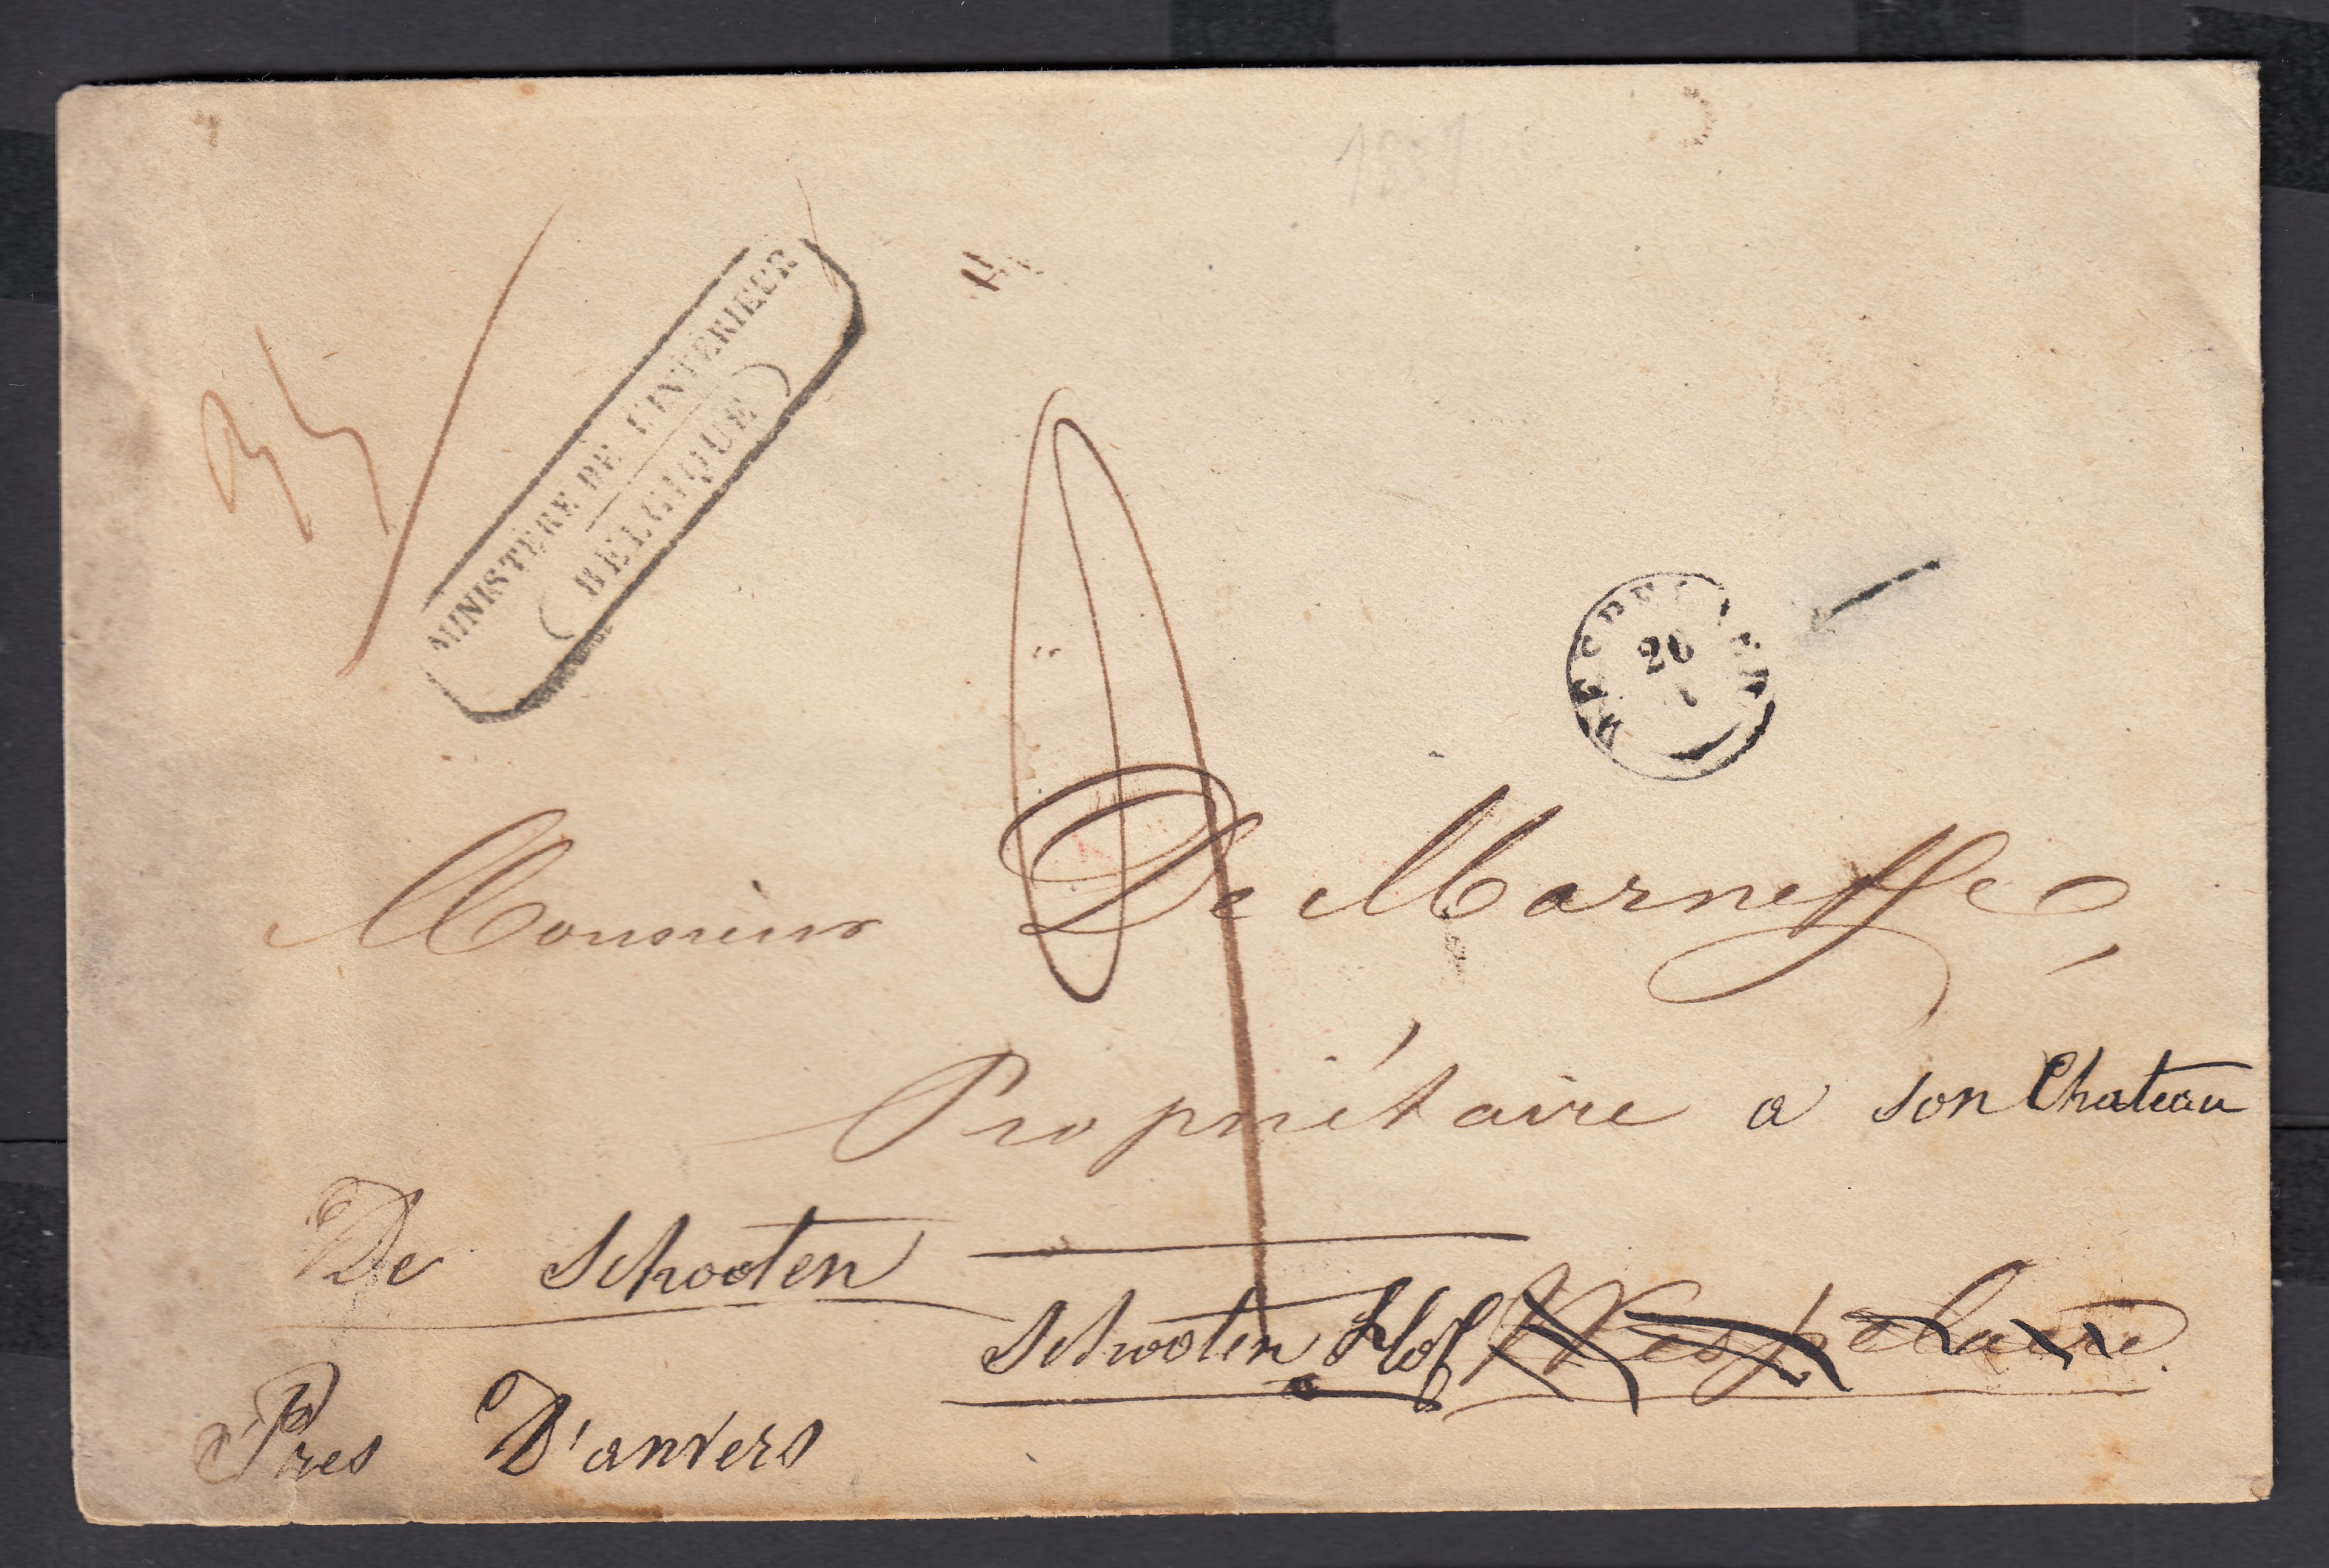 1857
MINISTÈRE DE L'INTÉRIEUR
BELGIQUE
26
Monsieur De Marneffe
Propriétaire a son Chateau
De Schooten
Schooten Hof Wespelaere.
Pres D'anvers